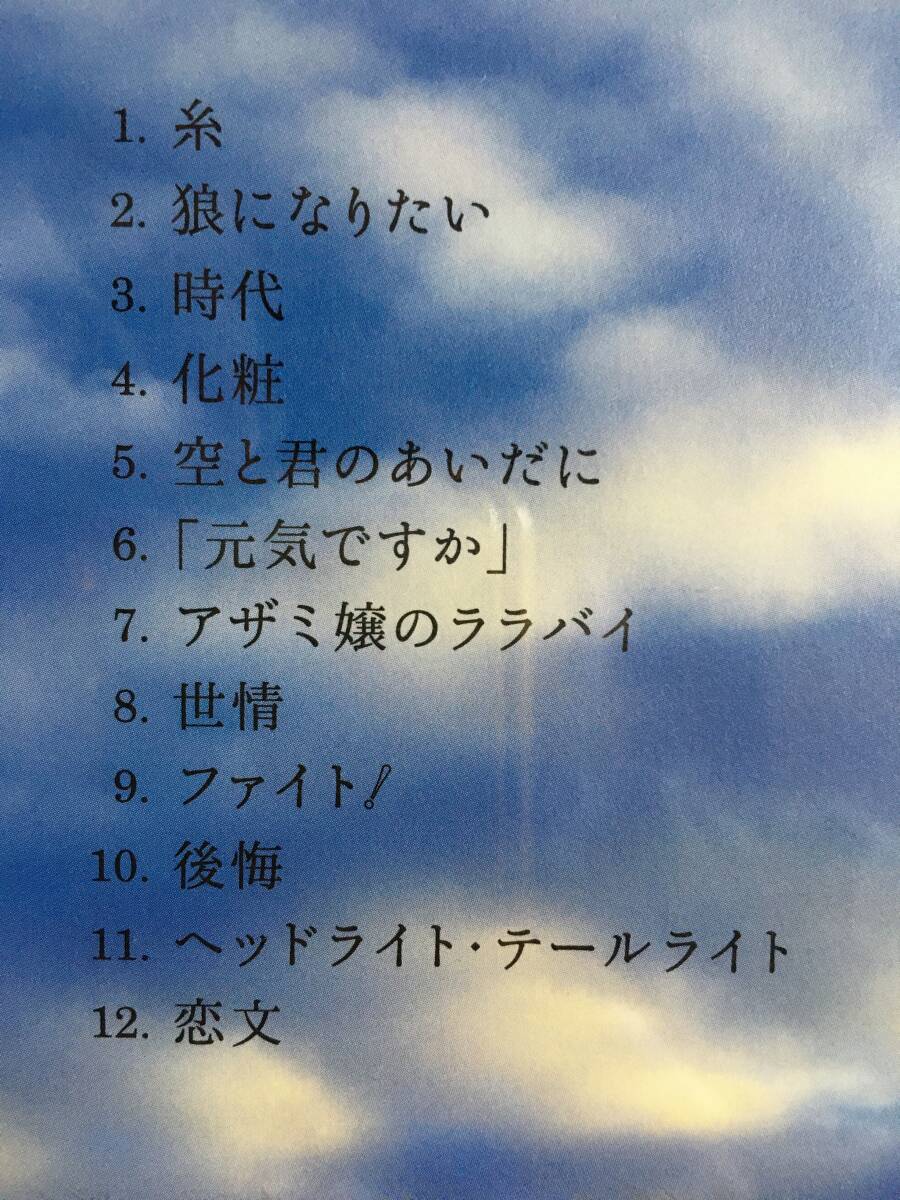 1. 糸
2. 狼になりたい
3. 時代
4. 化粧
5. 空と君のあいだに
6. 「元気ですか」
7. アザミ嬢のララバイ
8. 世情
9. ファイト!
10. 後悔
11. ヘッドライト・テールライト
12. 恋文